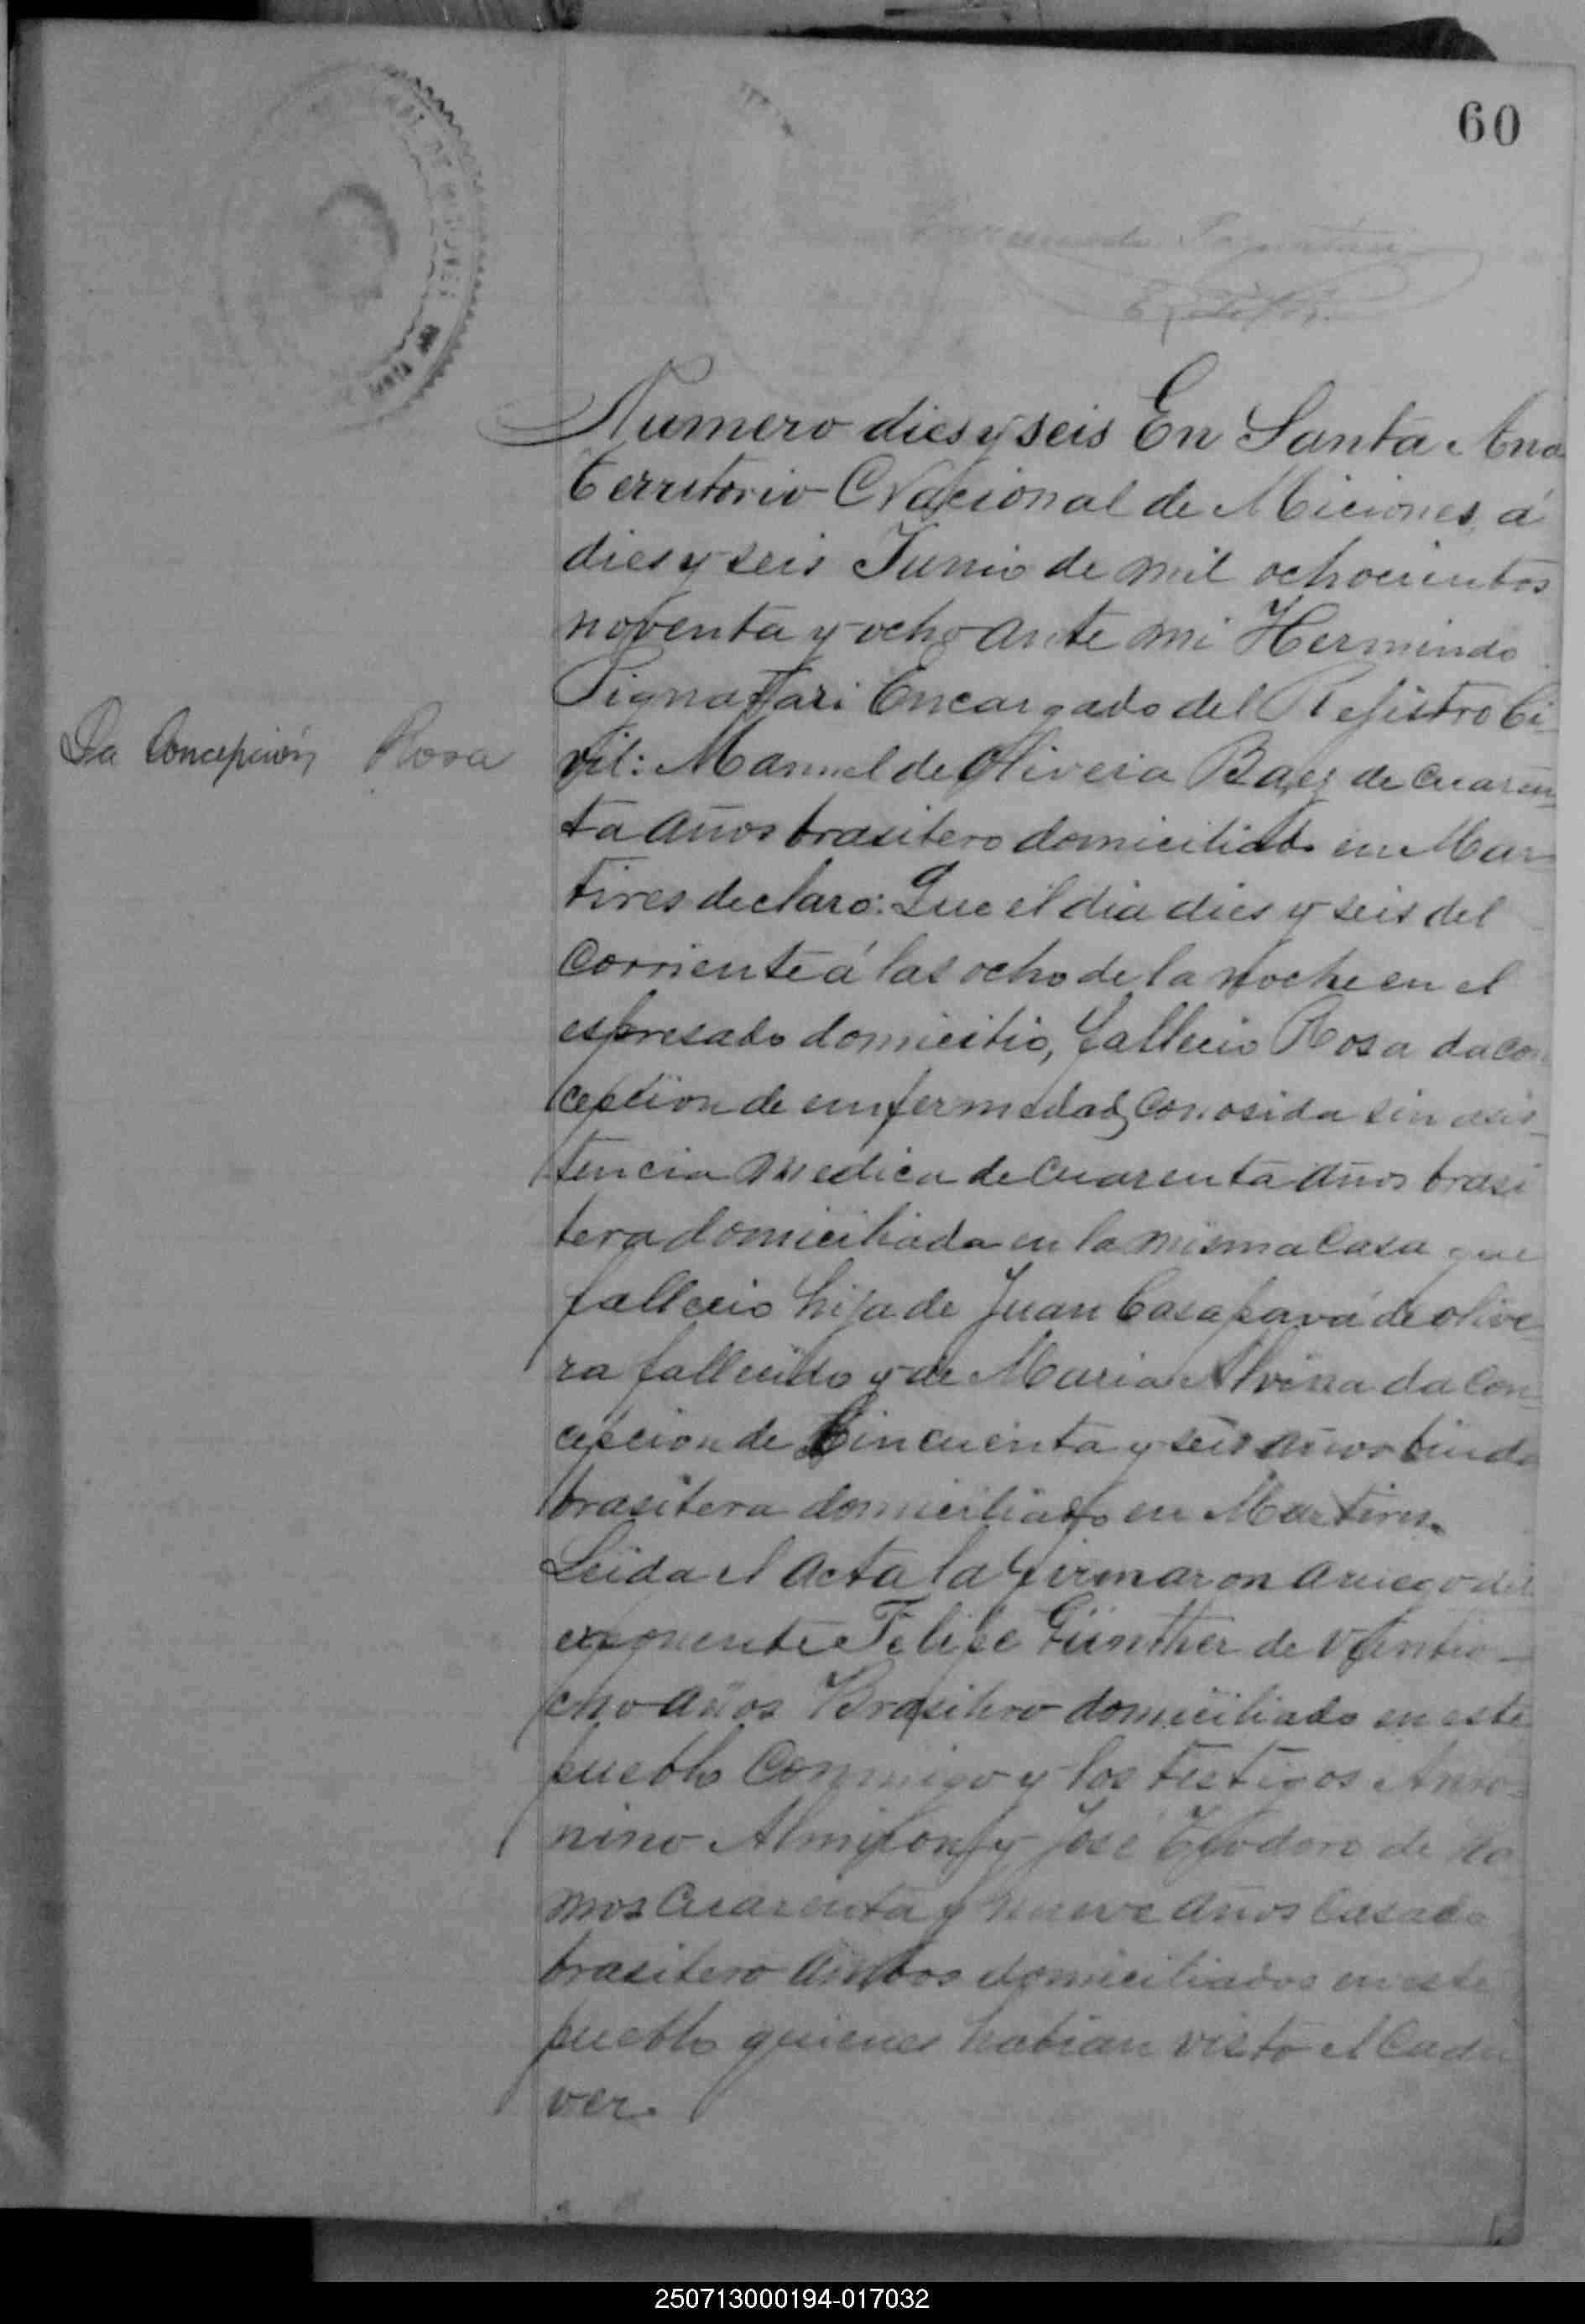 60
Numero dies y seis En Santa Ana
Territorio Nacional de Miciones, á
dies y seis Junio de mil ochocientos
noventa y ocho ante mi Hermindo
Pignatari Encargado del Rejistro Ci
Da Concepción Rosa
vil: Manuel de Oliveia Baes de cuaren
ta años brasilero domiciliado en Mar
tires declaro: Que el dia dies y seis del
corriente á las ocho de la noche en el
espresado domicilio, fallecio Rosa da con
cepcion de emfermedad conosida sin asis
tencia medica de cuarenta años brasi
lera domiciliada en la misma casa que
fallecio hija de Juan Casapavá de olive
ra fallecido y de Maria Alvina da Con
cepcion de Cincuenta y seis años biuda
brasilera domiciliado en Martires.
Leida el acta la firmaron aruego del
exponente Felipe Günther de veintio
cho años Brasilero domiciliado en este
pueblo Conmigo y los testigos
nino y José Teodoro de Ra
mos cuarenta y nueve años Casado
brasilero ambos domiciliados en este
pueblo quienes habian visto el Cada
ver.
250713000194-017032